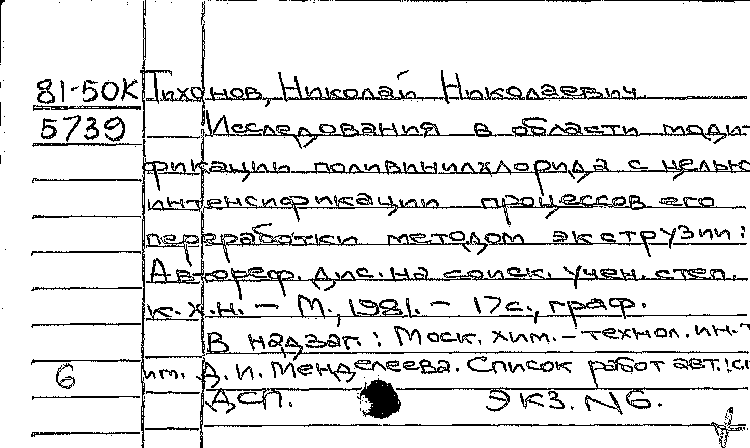 81-50К Тихонов, Николай Николаевич.
5739 Исследования в области моди-
фикации поливинилхлорида с целью
интенсификации процессов его
переработки методом экструзии:
Автореф. дис. на соиск. учен. степ.
к.х.н. – М., 1981. – 17 с., граф.
В надзаг.: Моск. хим.-технол. ин-т
6 им. Д. И. Менделеева. Список работ авт.:
ДСП. Экз. N6.